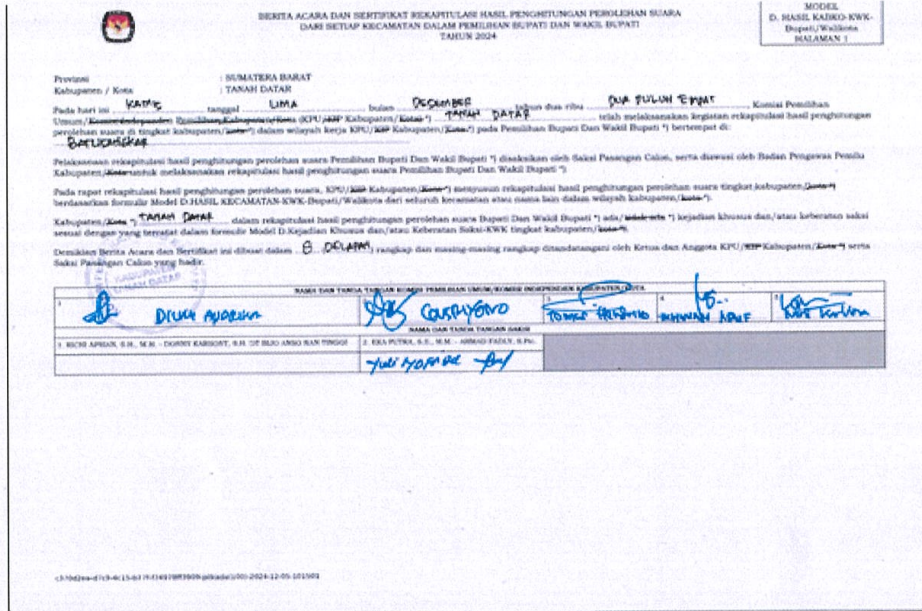 BERITA ACARA DAN SERTIFIKAT REKAPITULASI HASIL PENGHITUNGAN PEROLEHAN SUARA
DARI SETIAP KECAMATAN DALAM PEMILIHAN BUPATI DAN WAKIL BUPATI
TAHUN 2024
MODEL
D. HASIL KABKO-KWK-
Bupati/Walikota
HALAMAN 1
Provinsi : SUMATERA BARAT
Kabupaten / Kota : TANAH DATAR
Pada hari ini KAMIS tanggal LIMA bulan DESEMBER tahun dua ribu DUA PULUH EMPAT Komisi Pemilihan
Umum/Komisi Independen Pemilihan Kabupaten/Kota (KPU/KIP Kabupaten/Kota *) TANAH DATAR telah melaksanakan kegiatan rekapitulasi hasil penghitungan
perolehan suara di tingkat kabupaten/kota *) dalam wilayah kerja KPU/KIP Kabupaten/Kota *) pada Pemilihan Bupati Dan Wakil Bupati *) bertempat di:
BATUSANGKAR
Pelaksanaan rekapitulasi hasil penghitungan perolehan suara Pemilihan Bupati Dan Wakil Bupati *) disaksikan oleh Saksi Pasangan Calon, serta diawasi oleh Badan Pengawas Pemilu
Kabupaten/Kota untuk melaksanakan rekapitulasi hasil penghitungan suara Pemilihan Bupati Dan Wakil Bupati *).
Pada rapat rekapitulasi hasil penghitungan perolehan suara, KPU/KIP Kabupaten/Kota *) menyusun rekapitulasi hasil penghitungan perolehan suara tingkat kabupaten/kota *)
berdasarkan formulir Model D.HASIL KECAMATAN-KWK-Bupati/Walikota dari seluruh kecamatan atau nama lain dalam wilayah kabupaten/kota *).
Kabupaten/Kota *) TANAH DATAR dalam rekapitulasi hasil penghitungan perolehan suara Bupati Dan Wakil Bupati *) ada/tidak ada *) kejadian khusus dan/atau keberatan saksi
sesuai dengan yang tercatat dalam formulir Model D.Kejadian Khusus dan/atau Keberatan Saksi-KWK tingkat kabupaten/kota *).
Demikian Berita Acara dan Sertifikat ini dibuat dalam 8 (DELAPAN) rangkap dan masing-masing rangkap ditandatangani oleh Ketua dan Anggota KPU/KIP Kabupaten/Kota *) serta
Saksi Pasangan Calon yang hadir.
KABUPATEN
TANAH DATAR
NAMA DAN TANDA TANGAN KOMISI PEMILIHAN UMUM/KOMISI INDEPENDEN KABUPATEN/KOTA
1. 2. 3. 4. 5.
NAMA DAN TANDA TANGAN SAKSI
1. RICHI APRIAN, S.H., M.H. - DONNY KARSONT, S.H. DT BIJO ANSO NAN TINGGI
2. EKA PUTRA, S.E., M.M. - AHMAD FADLY, S.Psi.